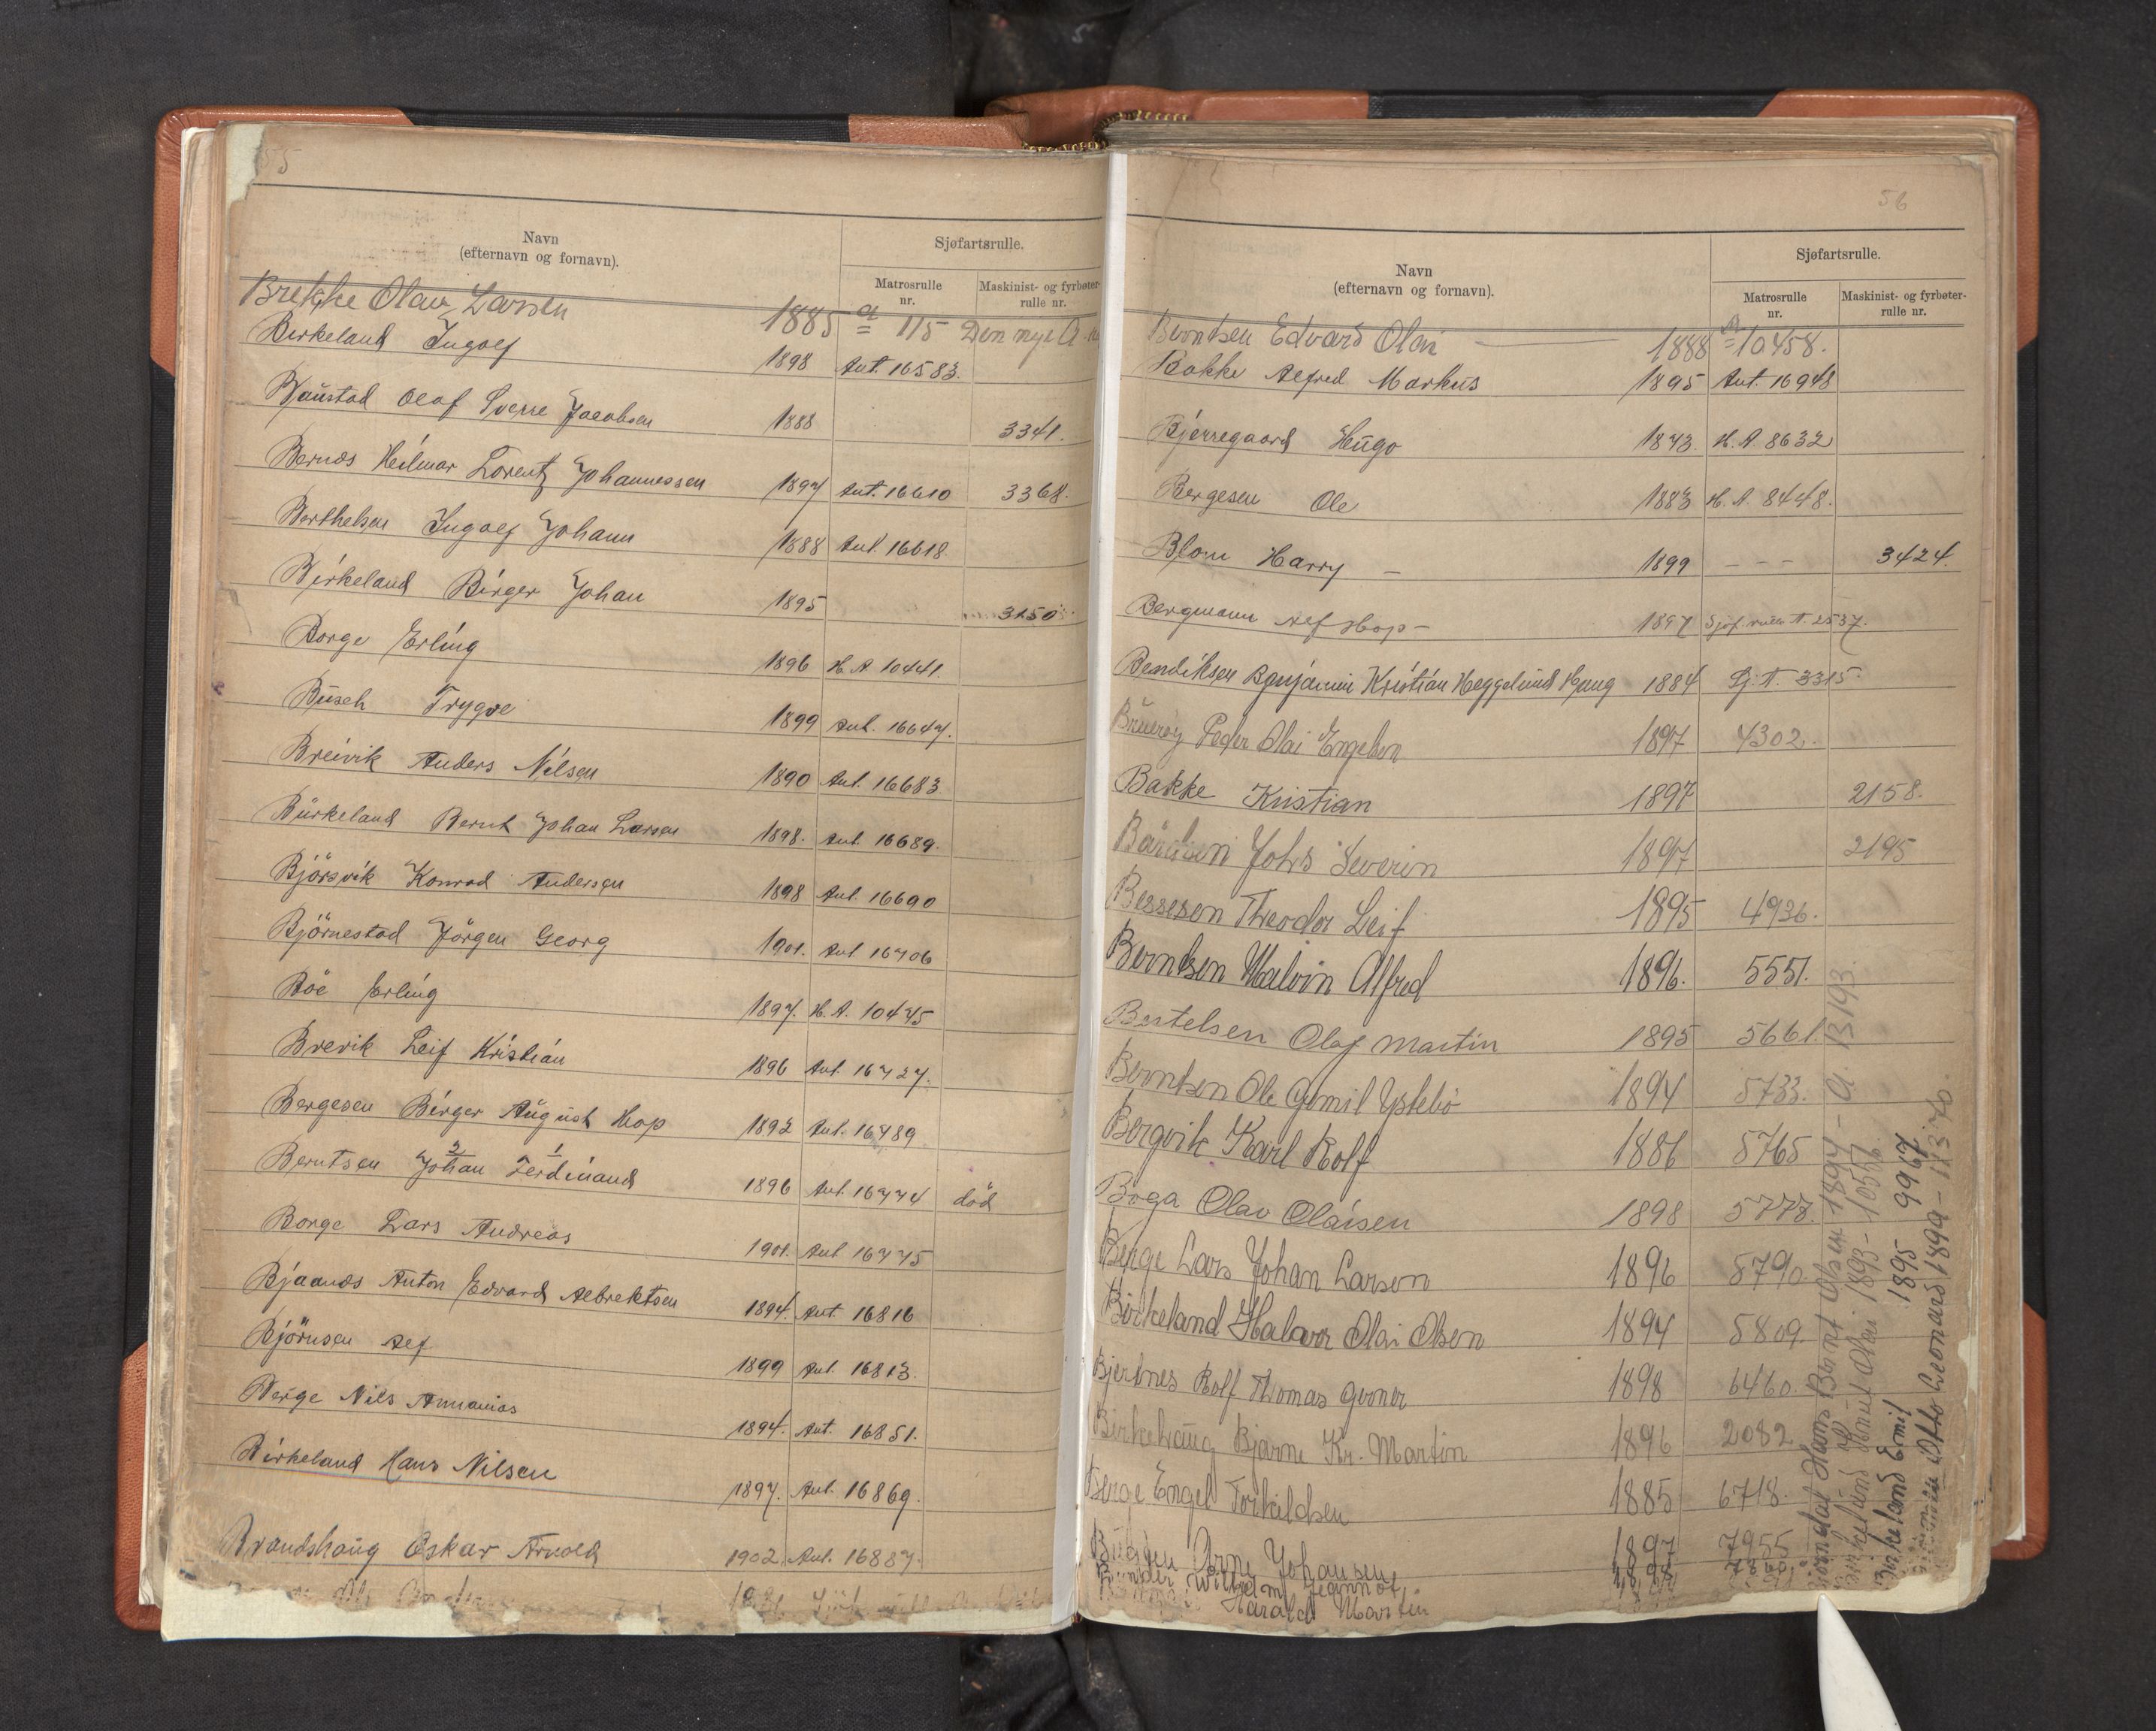 55
Navn
(efternavn og fornavn).
Sjøfartsrulle.
Matrosrulle
nr.
Maskinist- og fyrbøter-
rulle nr.
Brekke Olav Larsen 1885 a 115 Den nye A
Birkeland Ingolf 1898 Ant. 16583.
Olaf Sverre Jacobsen 1888 3341.
Bernes Heilmar Lorentz Johannessen 1897 Ant. 16610 3368.
Berthelsen Ingolf Johann 1888 Ant. 16618
Birkeland Birger Johan 1895 3150
Borge Erling 1896 H. A. 10441.
Busch Trygve 1899 Ant. 16647.
Breivik Anders Nilsen 1890 Ant. 16683
Bürkeland Bernt Johan Larsen 1898. Ant. 16689.
Bjørsvik Konrad Andersen 1898 Ant. 16690
Björnestad Jörgen Georg 1901. Ant 16706
Böe Erling 1897. H. A. 10475
Brevik Leif Kristian 1896 Ant. 16727.
Bergesen Birger August Hop 1892 Ant. 16789
2 1
Berntsen Johan Ferdinand 1896 Ant. 16774 död
Borge Lars Andreas 1901. Ant 16775
Bjaanes Anton Edvard Albrektsen 1894. Ant 16816
Björnsen Alf 1899 Ant. 16813.
Berge Nils Annanias 1894. Ant. 16851.
Birkeland Hans Nilsen 1897. Ant. 16869.
Brandshaug Oskar Arnold 1902. Ant. 16887.
56
Navn
(efternavn og fornavn).
Sjøfartsrulle.
Matrosrulle
nr.
Maskinist- og fyrbøter-
rulle nr.
Berntsen Edvard Olai 1888 10458.
Bakke Alfred Markus 1895 Ant. 16948
Bjerregaard Hugo 1873. H. A. 8632
Bergesen Ole 1883 H. A. 8448.
Blom Harry – 1899 - - - 3424.
Bergmann Alf Hop – 1897 Sjøf rulle A. 2537.
Bendiksen Benjamin Kristian Heggelund Haug 1884 Sj. A. 3315.
Peder Olai Engelsen 1897 4302.
Bakke Kristian 1897 2158.
Bårdsen Johs Severin 1897 2195
Bessesen Theodor Leif 1895 4936.
Berntsen Malvin Alfred 1896. 5551.
Bertelsen Olaf Martin 1895 5661.
Berntsen Ole Gomil Ystebö 1894 5733.
Bergvik Karl Rolf 1886 5765
Boga Olav Olaisen 1898 5778.
Berge Lars Johan Larsen 1896 5790.
Birkeland Halvor Olai Olsen 1894 5809.
Bjertnes Rolf Thomas Gerner 1898 6460.
Birkehaug Bjarne Kr. Martin 1896 2082
Berge Engel Torkildsen 1885 6718.
Arne Johansen 1897 7955
Wilhelm Jeannot
Harald Martin
Björndal Hans Bernt Olsen 1894 – A. 13193.
Birkelund Knut Olai 1893 – 10556.
Birkeland Emil 1895 9967.
Otto Leonard 1899 – 11370.